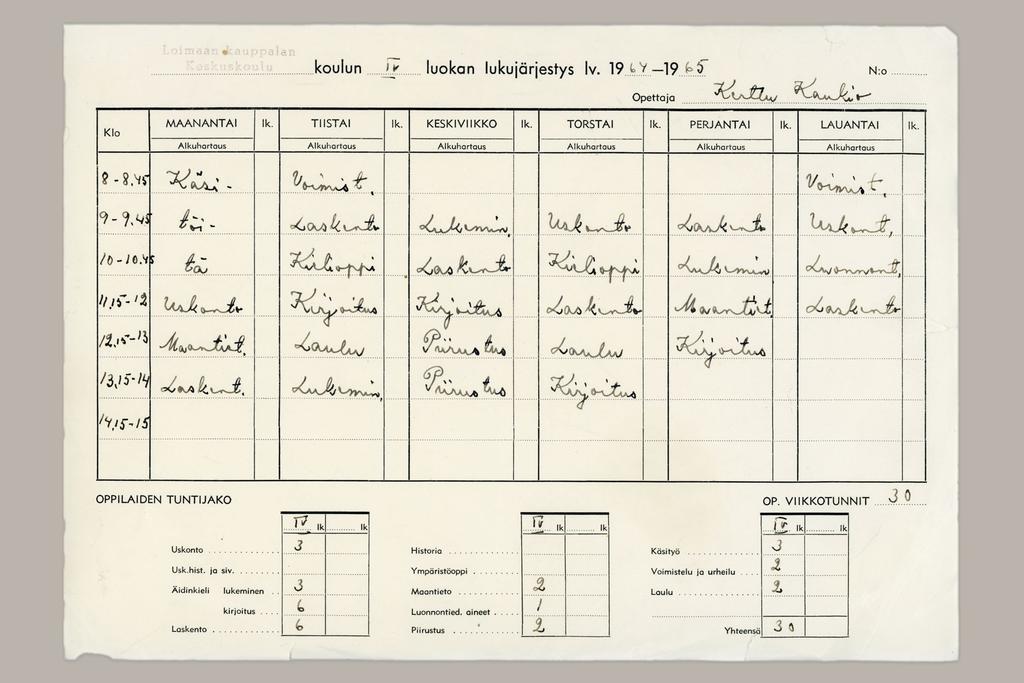 Loimaan kauppalan
Keskuskoulu
koulun IV luokan lukujärjestys lv. 1964–1965 N:o
Opettaja Kerttu Kaukio
Klo MAANANTAI lk. TIISTAI lk. KESKIVIIKKO lk. TORSTAI lk. PERJANTAI lk. LAUANTAI lk.
Alkuhartaus Alkuhartaus Alkuhartaus Alkuhartaus Alkuhartaus Alkuhartaus
8-8,45 Käsi- Voimist. Voimist.
9-9,45 töi- Laskento Lukemin. Uskonto Laskento Uskont,
10-10,45 tä Kielioppi Laskento Kielioppi Lukemin Luonnont.
11,15-12 Uskonto Kirjoitus Kirjoitus Laskento Maantiet. Laskento
12,15-13 Maantiet. Laulu Piirustus Laulu Kirjoitus
13,15-14 Laskent. Lukemin. Piirustus Kirjoitus
14,15-15
OPPILAIDEN TUNTIJAKO OP. VIIKKOTUNNIT 30
IV lk lk IV lk lk IV lk lk
Uskonto 3 Historia Käsityö 3
Usk.hist. ja siv. Ympäristöoppi Voimistelu ja urheilu 2
Äidinkieli lukeminen 3 Maantieto 2 Laulu 2
kirjoitus 6 Luonnontied. aineet 1
Laskento 6 Piirustus 2 Yhteensä 30